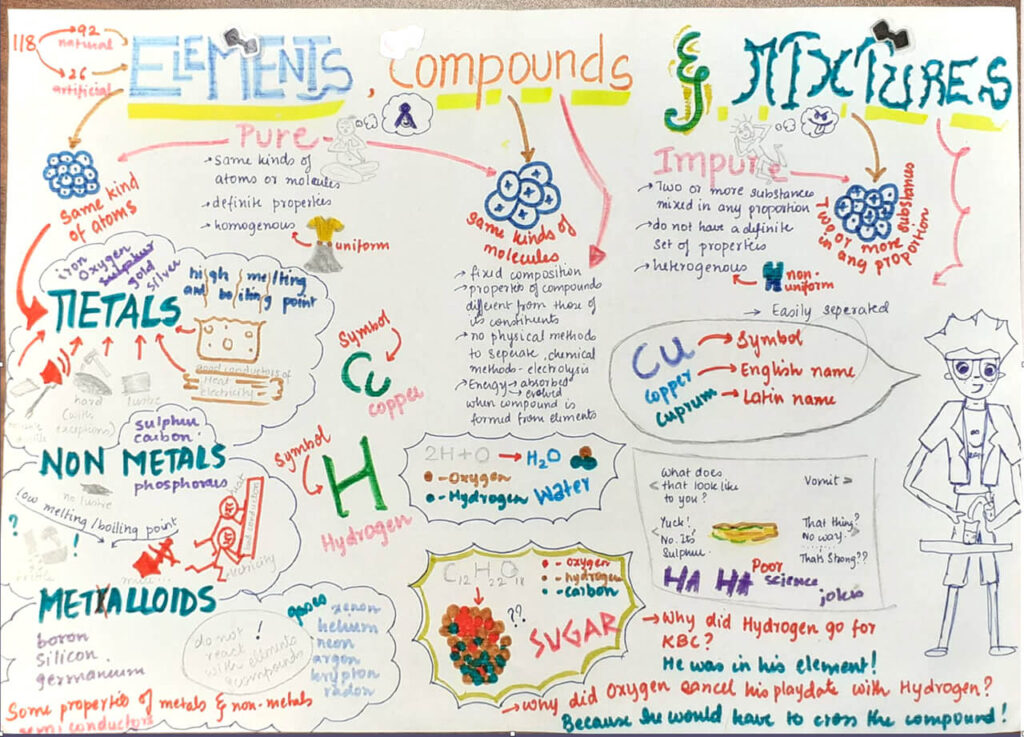 118
92
natural
26
artificial
ELEMENTS, Compounds & MIXTURES
Pure
→ same kinds of
atoms or molecules
→ definite properties
→ homogenous
uniform
Same kind
of atoms
same kinds of
molecules
→ fixed composition
→ properties of compounds
different from those of
its constituents
→ no physical methods
to seperate, chemical
methods - electrolysis
→ Energy → absorbed
→ evolved
when compound is
formed from elements
Impure
→ Two or more substances
mixed in any proportion
→ do not have a definite
set of properties
→ heterogenous
non-
uniform
Two or more substances
in any proportion
→ Easily seperated
iron
oxygen
sulphur
gold
silver
high melting
and boiling point
METALS
good conductors of
Heat
electricity
hard
(with
exceptions)
lustre
Symbol
Cu
copper
Cu → Symbol
copper → English name
cuprum → Latin name
sulphur
carbon
NON METALS
phosphorus
no lustre
low melting/boiling point
?
!
heat
bad conductors
electricity
Symbol
H
Hydrogen
2H+O → H2O
- Oxygen
- Hydrogen
Water
C12H22O18
- oxygen
- hydrogen
- carbon
??
SUGAR
What does
that look like
to you?
Vomit
Yuck!
No. Its
Sulphur
That thing?
No way.
Thats Strong??
HA HA
Poor
science
jokes
METALLOIDS
boron
Silicon
germanium
do not
react
with elements
compounds
!
gases
xenon
helium
neon
argon
krypton
radon
Some properties of metals & non-metals
semi conductors
→ Why did Hydrogen go for
KBC?
He was in his element!
→ Why did Oxygen cancel his playdate with Hydrogen?
Because he would have to cross the compound!